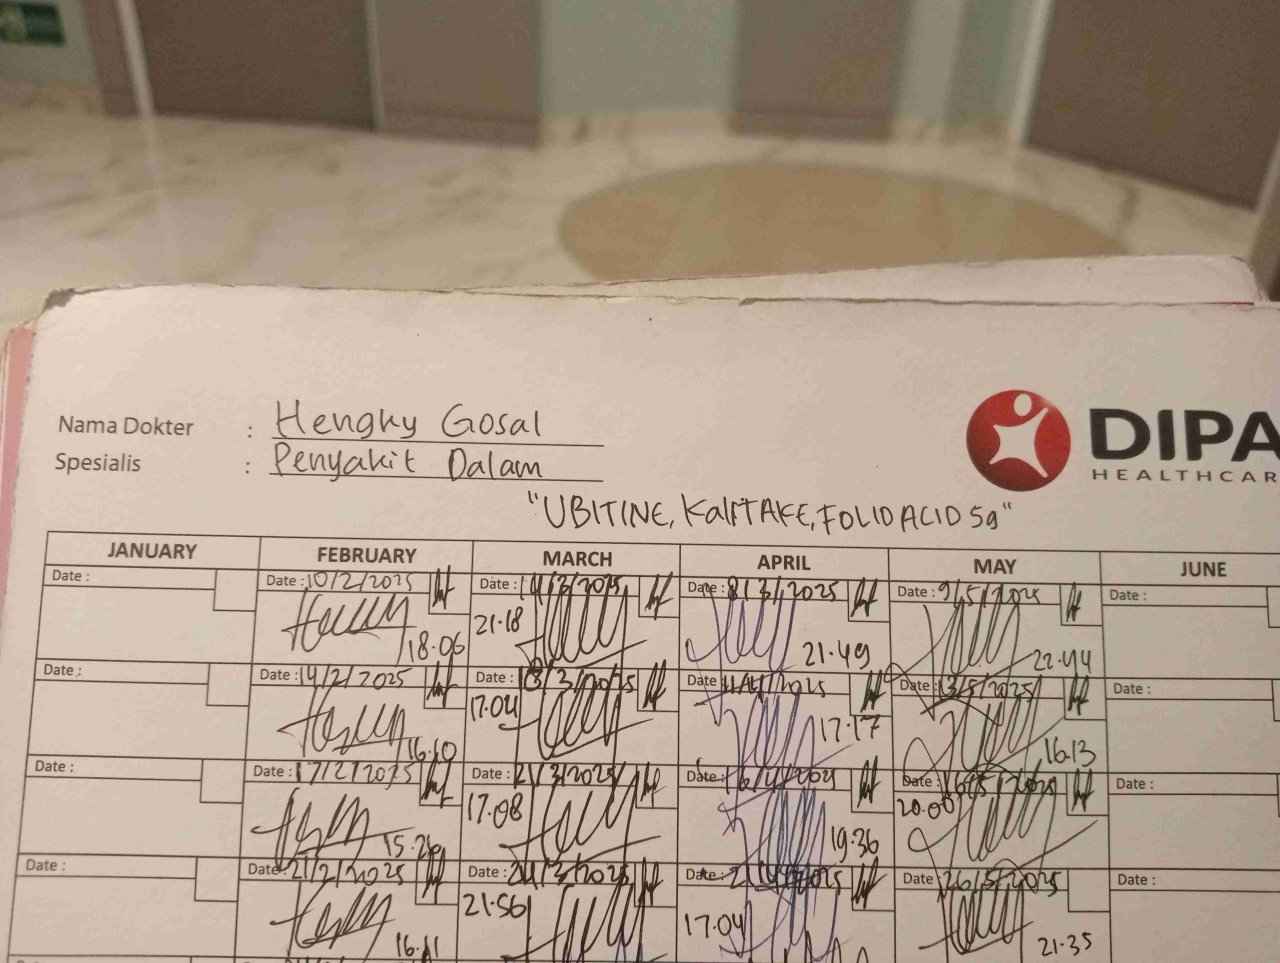 Nama Dokter : Hengky Gosal
Spesialis : Penyakit Dalam
DIPA
HEALTHCAR
"UBITINE, KalITAKE, FOLID ACID 5g"
JANUARY FEBRUARY MARCH APRIL MAY JUNE
Date : Date : 10/2/2025 Date : 14/3/2025 Date : 8/3/2025 Date : 9/5/2025 Date :
18.06 21.18 21.49 22.44
Date : Date : 14/2/2025 Date : 18/3/2025 Date : 11/4/2025 Date : 13/5/2025 Date :
16.10 17.04 17.17 16.13
Date : Date : 17/2/2025 Date : 21/3/2025 Date : Date : 16/5/2025 Date :
17.08 19.36 20.00
Date : Date : 21/2/2025 Date : 24/3/2025 Date : Date : 26/5/2025 Date :
16.11 21.56 17.04 21.35